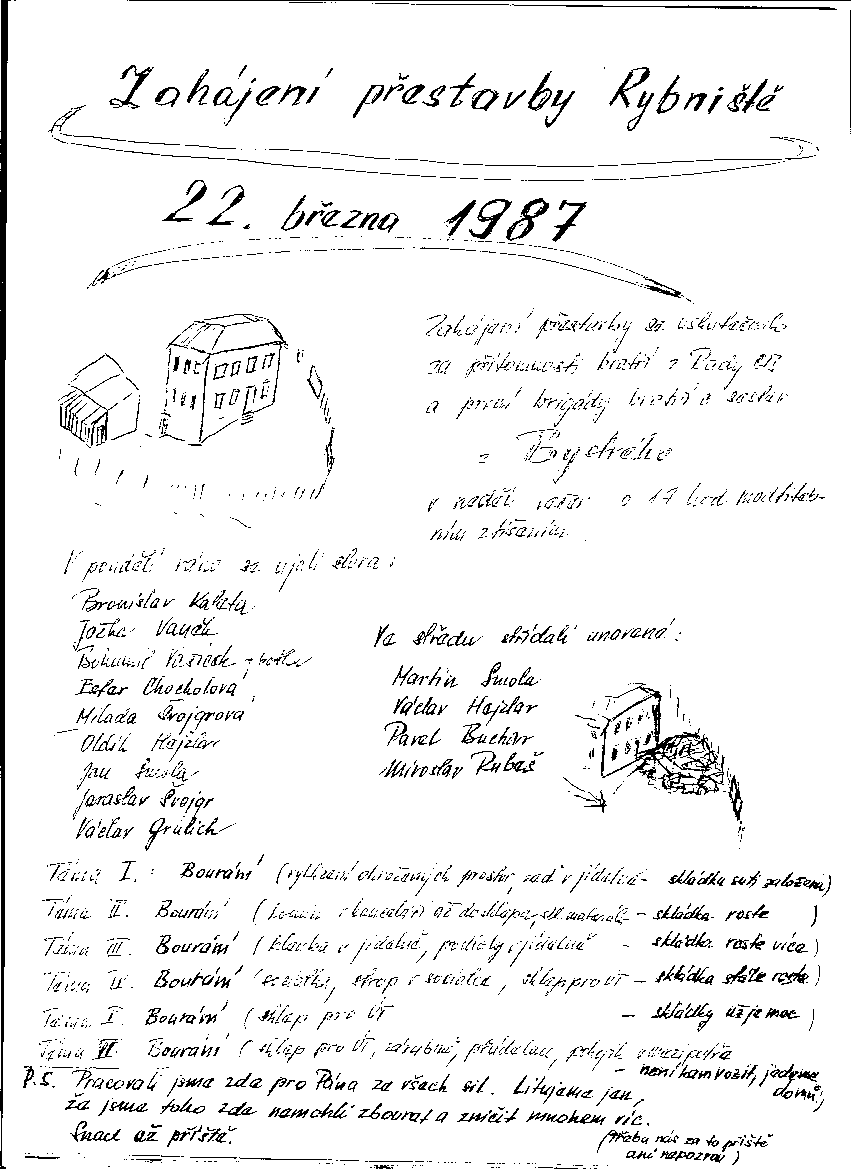 Zahájení přestavby Rybniště
22. března 1987
Zahájení přestavby se uskutečnilo
za přítomnosti bratří z Rady
a první brigády bratří a sester
z Bystrého
v neděli večer o 17 hod modliteb-
ním ztišením.
V pondělí ráno se ujali slova:
Bronislav Kaleta
Jožka Vaněk
Bohumil Vašíček
Ester Chocholová
Milada Švojgrová
Oldřich Hajzlar
Jan Smola
Jaroslav Švojgr
Václav Grulich
Ve středu střídali unavené:
Martin Smola
Václav Hajzlar
Pavel Buchar
Miroslav Rubeš
Téma I. : Bourání ( ohrožených prostor, zeď v jídelně - skládka suti založena)
Téma II. Bourání (komín v kanceláři až do sklepa, skl. materiálu - skládka roste )
Téma III. Bourání (klenba v jídelně, podlahy v jídelně - skládka roste více)
Téma IV. Bourání ( , strop v sociálce, sklep pro ÚT - skládka stále roste)
Téma V. Bourání (sklep pro ÚT - skládky už je moc )
Téma VI. Bourání (sklep pro ÚT, zárubně, přídělau, v mezipatře
- není kam vozit, jedeme
domů)
P.S. Pracovali jsme zde pro Pána ze všech sil. Litujeme jen,
že jsme toho zde nemohli zbourat a zničit mnohem víc.
Snad až příště.
(třeba nás za to příště
ani nepozvou)